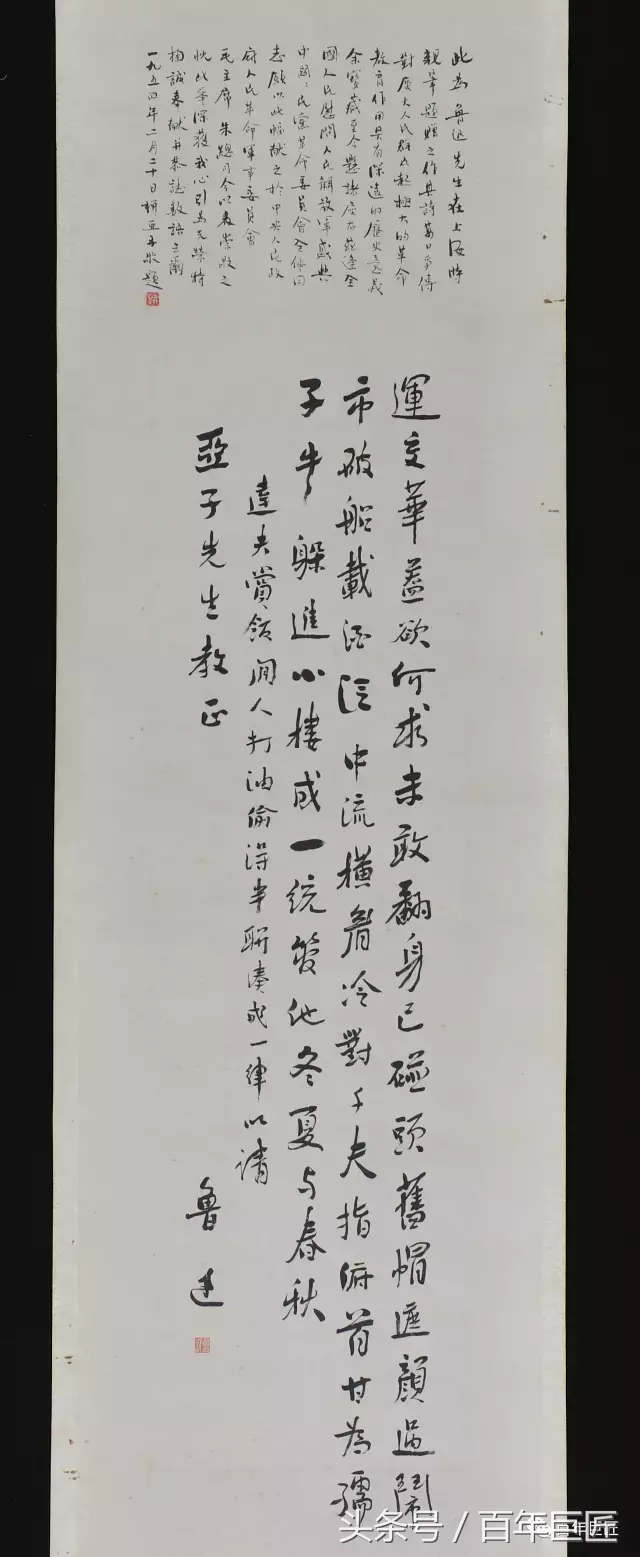 此为鲁迅先生在上海時
親筆題贈之作其詩萬口爭傳
對廣大人民群众起極大的革命
教育作用具有深遠的歷史意義
余寶藏至今懸諸座右兹逢全
國人民慰問人民解放軍盛典
中國々民黨革命委員會全体同
志願以此幅献之於中央人民政
府人民革命軍事委員會
毛主席 朱總司令以表崇敬之
忱此举深獲我心引為光榮特
掬誠奉献并恭誌数語云爾
一九五四年二月二十日柳亞子敬題
運交華蓋欲何求未敢翻身已碰頭舊帽遮顏過鬧
市破船載酒泛中流橫眉冷對千夫指俯首甘為孺
子牛躲進小樓成一統管他冬夏与春秋
達夫賞飯閑人打油偷得半聯湊成一律以請
亞子先生教正
魯迅
头条号／百年巨匠